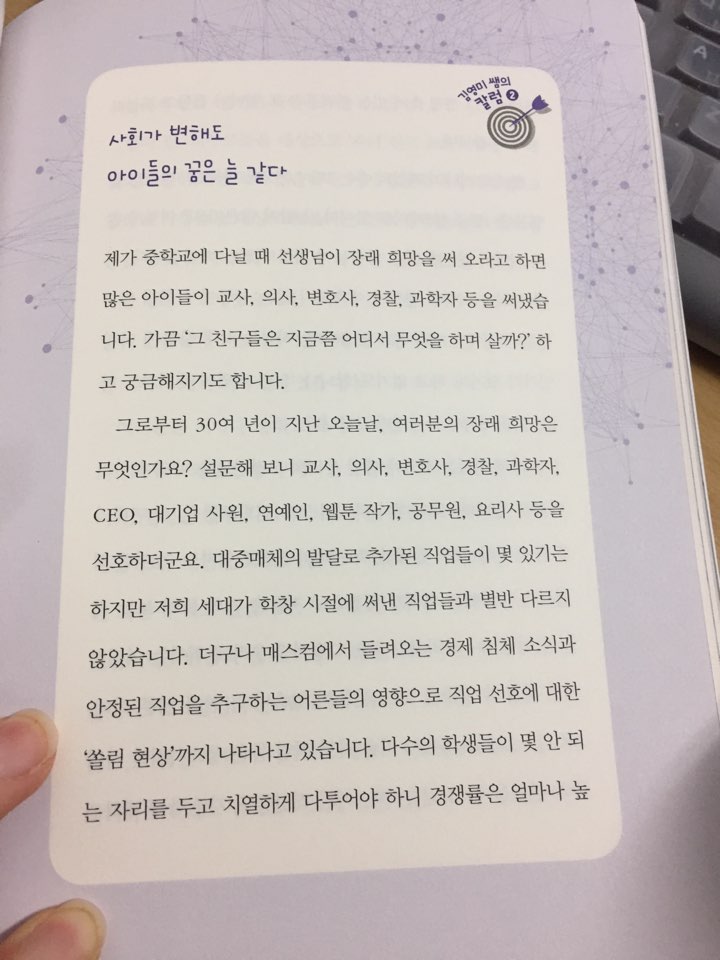 김영미 쌤의
칼럼 2
사회가 변해도
아이들의 꿈은 늘 같다
제가 중학교에 다닐 때 선생님이 장래 희망을 써 오라고 하면
많은 아이들이 교사, 의사, 변호사, 경찰, 과학자 등을 써냈습
니다. 가끔 ‘그 친구들은 지금쯤 어디서 무엇을 하며 살까?’ 하
고 궁금해지기도 합니다.
그로부터 30여 년이 지난 오늘날, 여러분의 장래 희망은
무엇인가요? 설문해 보니 교사, 의사, 변호사, 경찰, 과학자,
CEO, 대기업 사원, 연예인, 웹툰 작가, 공무원, 요리사 등을
선호하더군요. 대중매체의 발달로 추가된 직업들이 몇 있기는
하지만 저희 세대가 학창 시절에 써낸 직업들과 별반 다르지
않았습니다. 더구나 매스컴에서 들려오는 경제 침체 소식과
안정된 직업을 추구하는 어른들의 영향으로 직업 선호에 대한
‘쏠림 현상’까지 나타나고 있습니다. 다수의 학생들이 몇 안 되
는 자리를 두고 치열하게 다투어야 하니 경쟁률은 얼마나 높